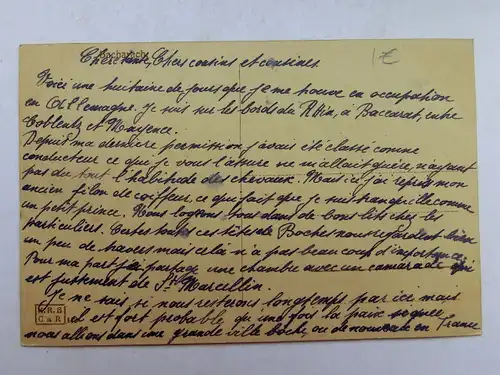 Bacharach
1€
Chère tante, Chers cousins et cousines
Voici une huitaine de jours que je me trouve en occupation
en Allemagne. Je suis sur les bords du Rhin, à Baccarat, entre
Coblentz et Mayence.
Depuis ma dernière permission j'avais été classé comme
conducteur ce que je vous l'assure ne m'allait guère, n'ayant
pas du tout l'habitude des chevaux. Mais ici j'ai repris mon
ancien filon de coiffeur, ce qui fait que je suis tranquille comme
un petit prince. Nous logeons tous dans de bons lits chez les
particuliers. Certes toutes ces têtes de Boches nous regardent bien
un peu de travers mais cela n'a pas beaucoup d'importance.
Pour ma part je partage une chambre avec un camarade qui
est justement de St Marcellin.
Je ne sais si nous resterons longtemps par ici mais
il est fort probable qu'une fois la paix signée
nous allions dans une grande ville boche, ou de nouveau en France